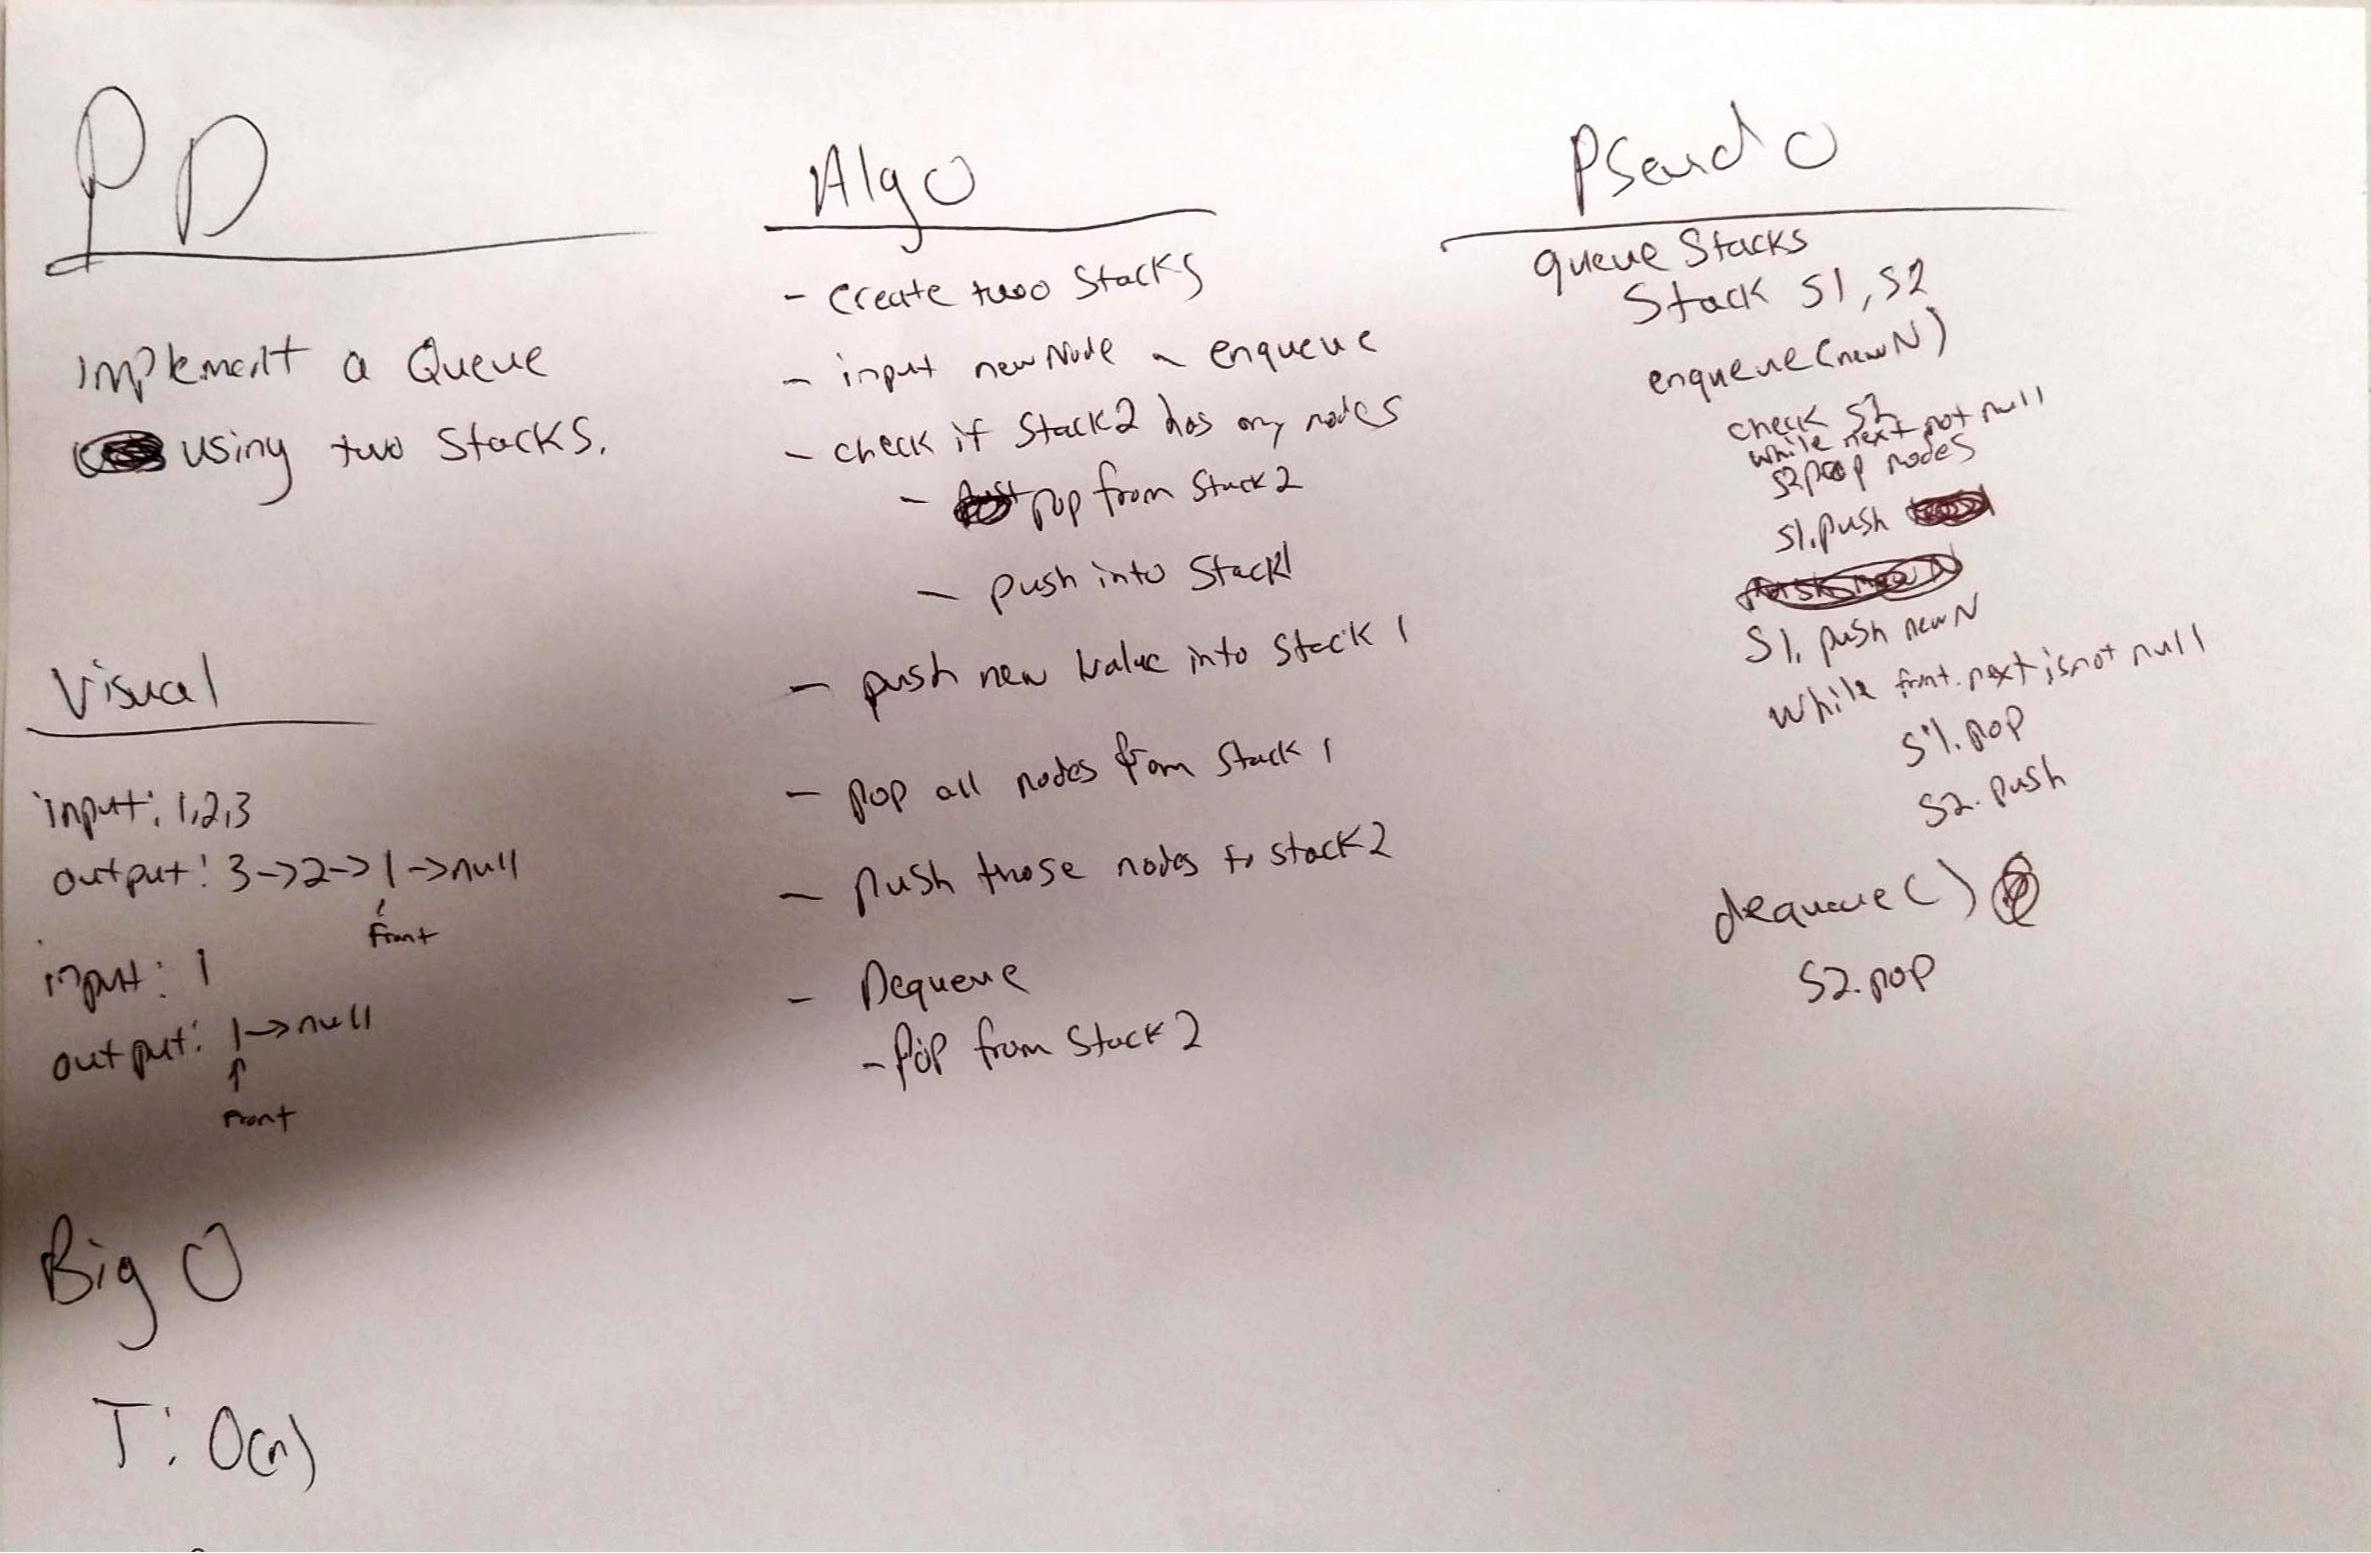 PD
Implement a Queue
using two Stacks.
Visual
input: 1,2,3
output: 3->2->1->null
front
input: 1
output: 1->null
front
Big O
T: O(n)
Algo
- create two Stacks
- input newNode - enqueue
- check if Stack2 has any nodes
- pop from Stack2
- push into Stack1
- push new value into Stack 1
- pop all nodes from Stack 1
- push those nodes to stack2
- Dequeue
- Pop from Stack 2
Pseudo
queue Stacks
Stack S1, S2
enqueue(newN)
check S2
while next not null
S2 pop nodes
S1.push
S1. push newN
while front.next is not null
S1.pop
S2.push
dequeue()
S2.pop